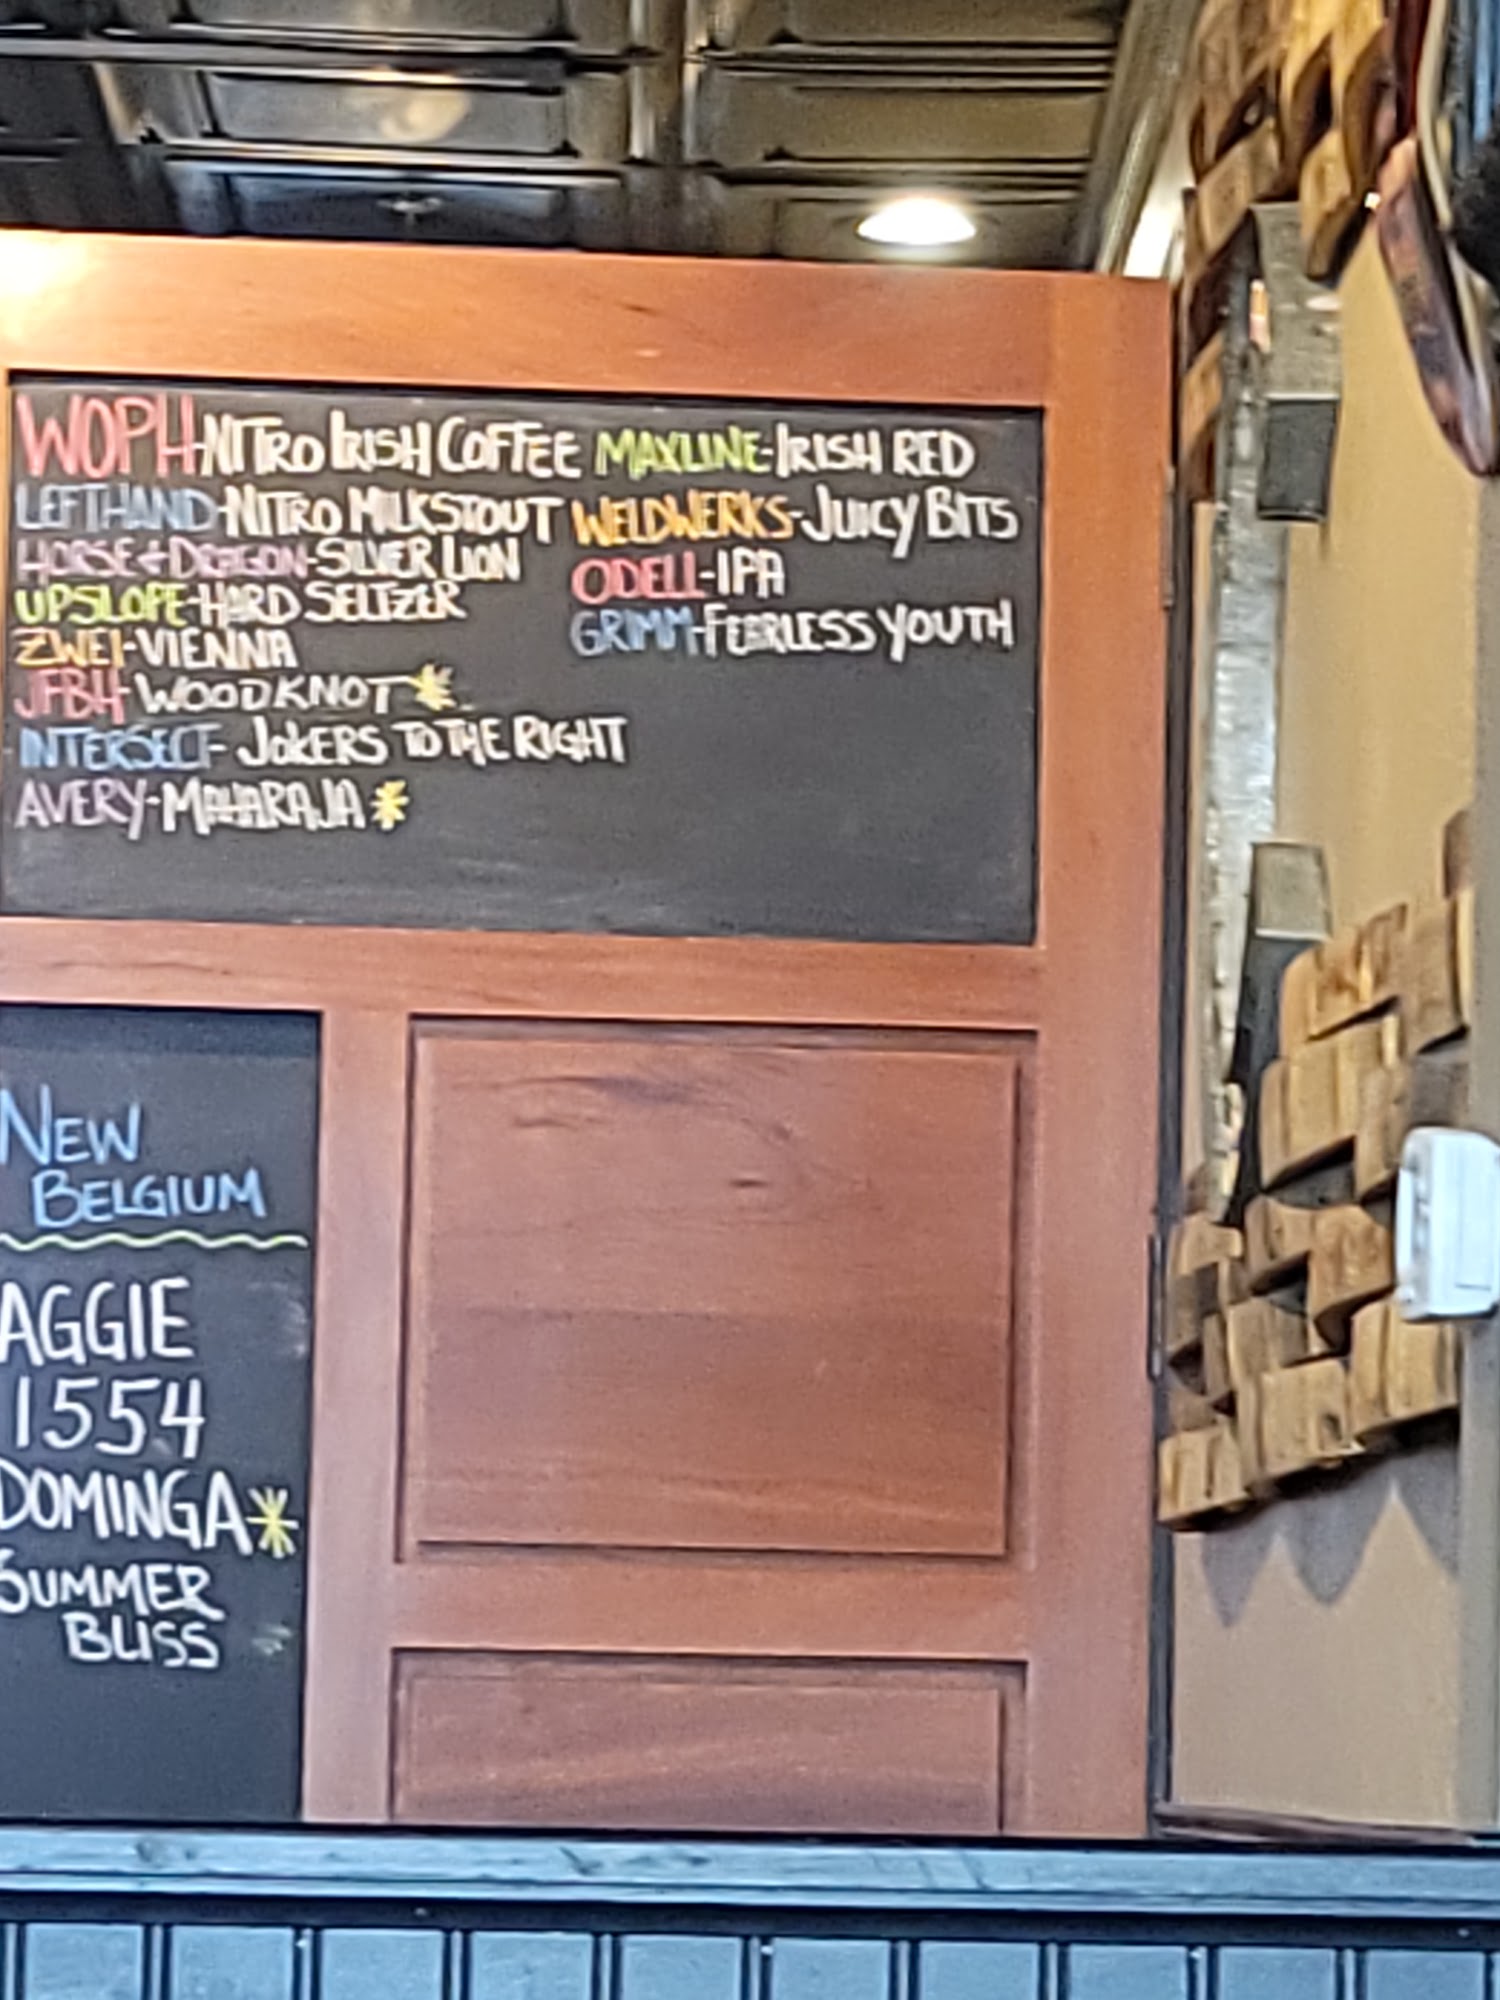 WOPH-NITRO IRISH COFFEE
LEFTHAND-NITRO MILKSTOUT
HORSE & DRAGON-SILVER LION
UPSLOPE-HARD SELTZER
ZWEI-VIENNA
JFBH-WOODKNOT*
INTERSECT-JOKERS TO THE RIGHT
AVERY-MAHARAJA*
MAXLINE-IRISH RED
WELDWERKS-JUICY BITS
ODELL-IPA
GRIMM-FEARLESS YOUTH
NEW
BELGIUM
AGGIE
1554
DOMINGA*
SUMMER
BLISS